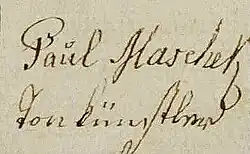 Paul Maschek
Tonkünstler